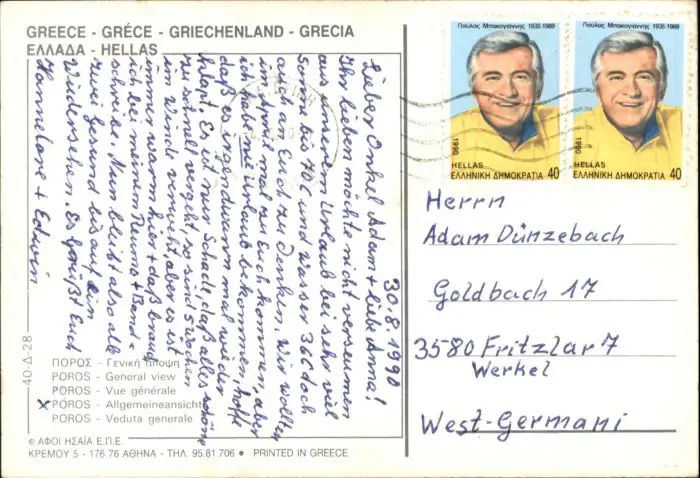 GREECE - GRÉCE - GRIECHENLAND - GRECIA
ΕΛΛΑΔΑ - HELLAS
30.8.1990
Lieber Onkel Adam + liebe Anna!
Ihr lieben, möchte nicht versäumen
aus unserem Urlaub bei sehr viel
Sonne bis 40C und Wasser 36C doch
auch an Euch zu Denken. Wir wollten
im April mal zu Euch kommen, aber
ich habe nie Urlaub bekommen, hoffe
daß es irgendwann mal wieder
klapt. Es ist nur Schade, daß alles schöne
zu schnell vergeht, so sind 5 wochen
im Winde verweht, aber es ist
immer warm hier + daß brauch
ich bei meinem Reuma + Band-
scheibe. Nun bleibt also alle
zwei Gesund bis auf ein
Wiedersehen. Es grüßt Euch
Hannelore + Edwin
40-Δ-28
ΠΟΡΟΣ - Γενική άποψη
POROS - General view
POROS - Vue générale
x POROS - Allgemeineansicht
POROS - Veduta generale
© ΑΦΟΙ ΗΣΑΪΑ Ε.Π.Ε.
ΚΡΕΜΟΥ 5 - 176 76 ΑΘΗΝΑ - ΤΗΛ. 95.81.706 • PRINTED IN GREECE
Παύλος Μπακογιάννης 1935-1989
1990
HELLAS
ΕΛΛΗΝΙΚΗ ΔΗΜΟΚΡΑΤΙΑ 40
Παύλος Μπακογιάννης 1935-1989
1990
HELLAS
ΕΛΛΗΝΙΚΗ ΔΗΜΟΚΡΑΤΙΑ 40
Herrn
Adam Dünzebach
Goldbach 17
3580 Fritzlar 7
Werkel
West-Germani